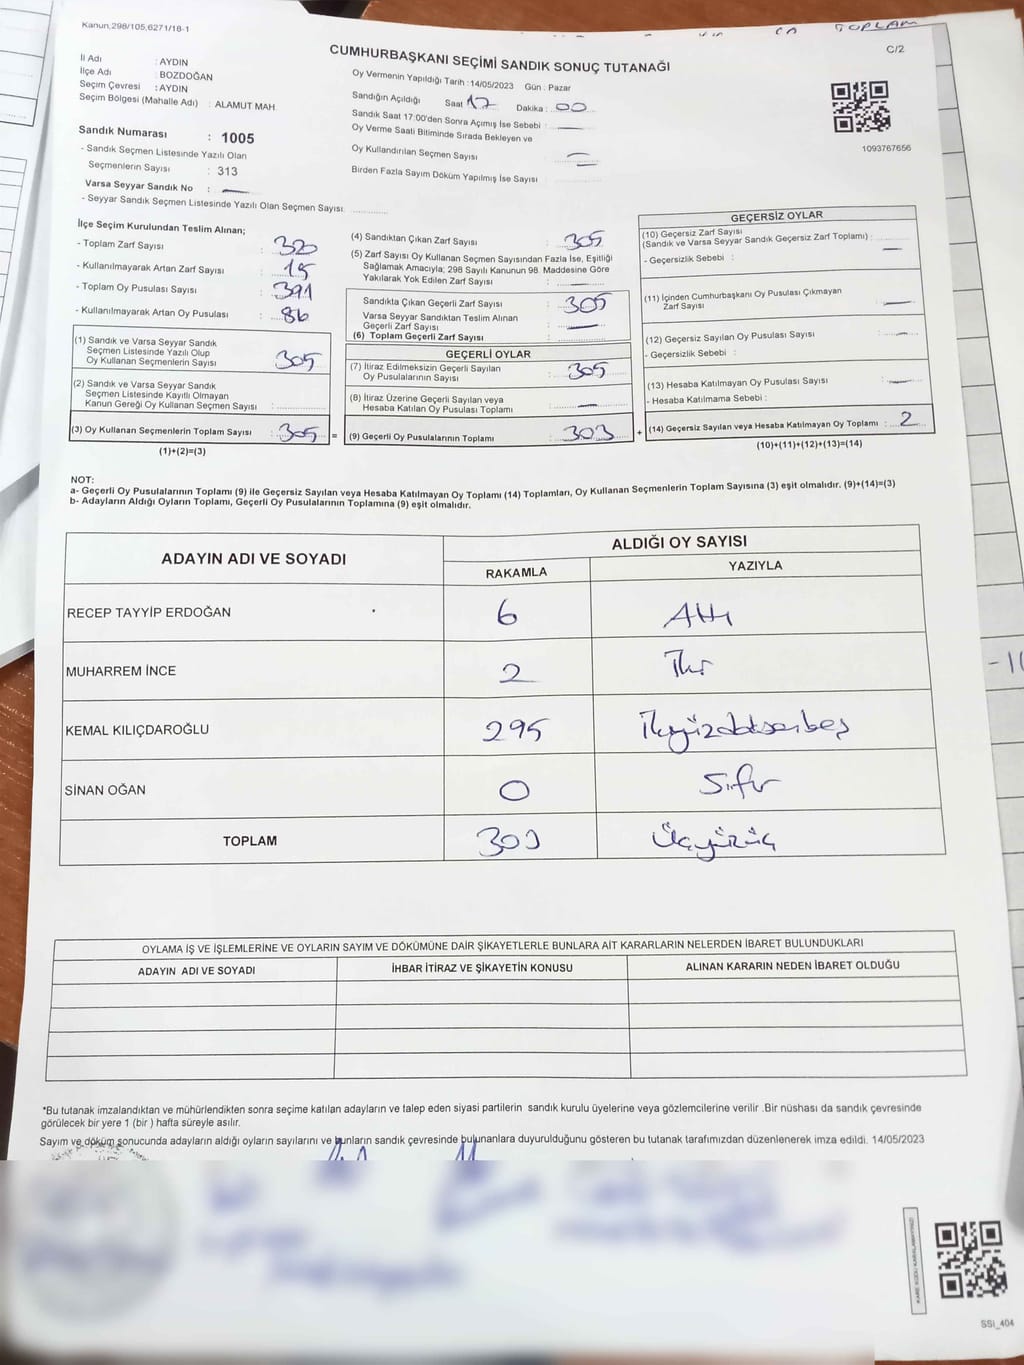 Kanun.298/105,6271/18-1
TOPLAM
C/2
CUMHURBAŞKANI SEÇİMİ SANDIK SONUÇ TUTANAĞI
İl Adı : AYDIN
İlçe Adı : BOZDOĞAN
Seçim Çevresi : AYDIN
Seçim Bölgesi (Mahalle Adı) : ALAMUT MAH.
Oy Vermenin Yapıldığı Tarih : 14/05/2023 Gün : Pazar
Sandığın Açıldığı Saat 17 Dakika : 00
Sandık Saat 17:00'den Sonra Açımış İse Sebebi :
Oy Verme Saati Bitiminde Sırada Bekleyen ve
Oy Kullandırılan Seçmen Sayısı
Birden Fazla Sayım Döküm Yapılmış İse Sayısı
1093767656
Sandık Numarası : 1005
- Sandık Seçmen Listesinde Yazılı Olan
Seçmenlerin Sayısı : 313
Varsa Seyyar Sandık No :
- Seyyar Sandık Seçmen Listesinde Yazılı Olan Seçmen Sayısı:
İlçe Seçim Kurulundan Teslim Alınan;
- Toplam Zarf Sayısı : 320
- Kullanılmayarak Artan Zarf Sayısı : 15
- Toplam Oy Pusulası Sayısı : 391
- Kullanılmayarak Artan Oy Pusulası : 86
(1) Sandık ve Varsa Seyyar Sandık
Seçmen Listesinde Yazılı Olup
Oy Kullanan Seçmenlerin Sayısı : 305
(2) Sandık ve Varsa Seyyar Sandık
Seçmen Listesinde Kayıtlı Olmayan
Kanun Gereği Oy Kullanan Seçmen Sayısı :
(3) Oy Kullanan Seçmenlerin Toplam Sayısı : 305 =
(1)+(2)=(3)
(4) Sandıktan Çıkan Zarf Sayısı : 305
(5) Zarf Sayısı Oy Kullanan Seçmen Sayısından Fazla İse, Eşitliği
Sağlamak Amacıyla; 298 Sayılı Kanunun 98. Maddesine Göre
Yakılarak Yok Edilen Zarf Sayısı :
Sandıkta Çıkan Geçerli Zarf Sayısı : 305
Varsa Seyyar Sandıktan Teslim Alınan
Geçerli Zarf Sayısı :
(6) Toplam Geçerli Zarf Sayısı :
GEÇERLİ OYLAR
(7) İtiraz Edilmeksizin Geçerli Sayılan
Oy Pusulalarının Sayısı : 305
(8) İtiraz Üzerine Geçerli Sayılan veya
Hesaba Katılan Oy Pusulası Toplamı :
(9) Geçerli Oy Pusulalarının Toplamı : 303 +
GEÇERSİZ OYLAR
(10) Geçersiz Zarf Sayısı
(Sandık ve Varsa Seyyar Sandık Geçersiz Zarf Toplamı) :
- Geçersizlik Sebebi :
(11) İçinden Cumhurbaşkanı Oy Pusulası Çıkmayan
Zarf Sayısı
(12) Geçersiz Sayılan Oy Pusulası Sayısı :
- Geçersizlik Sebebi :
(13) Hesaba Katılmayan Oy Pusulası Sayısı :
- Hesaba Katılmama Sebebi :
(14) Geçersiz Sayılan veya Hesaba Katılmayan Oy Toplamı : 2
(10)+(11)+(12)+(13)=(14)
NOT:
a- Geçerli Oy Pusulalarının Toplamı (9) ile Geçersiz Sayılan veya Hesaba Katılmayan Oy Toplamı (14) Toplamları, Oy Kullanan Seçmenlerin Toplam Sayısına (3) eşit olmalıdır. (9)+(14)=(3)
b- Adayların Aldığı Oyların Toplamı, Geçerli Oy Pusulalarının Toplamına (9) eşit olmalıdır.
ADAYIN ADI VE SOYADI
ALDIĞI OY SAYISI
RAKAMLA YAZIYLA
RECEP TAYYİP ERDOĞAN 6 Altı
MUHARREM İNCE 2 İki
KEMAL KILIÇDAROĞLU 295 İkiyüzdoksanbeş
SİNAN OĞAN 0 Sıfır
TOPLAM 303 Üçyüzüç
OYLAMA İŞ VE İŞLEMLERİNE VE OYLARIN SAYIM VE DÖKÜMÜNE DAİR ŞİKAYETLERLE BUNLARA AİT KARARLARIN NELERDEN İBARET BULUNDUKLARI
ADAYIN ADI VE SOYADI İHBAR İTİRAZ VE ŞİKAYETİN KONUSU ALINAN KARARIN NEDEN İBARET OLDUĞU
*Bu tutanak imzalandıktan ve mühürlendikten sonra seçime katılan adayların ve talep eden siyasi partilerin sandık kurulu üyelerine veya gözlemcilerine verilir .Bir nüshası da sandık çevresinde
görülecek bir yere 1 (bir ) hafta süreyle asılır.
Sayım ve döküm sonucunda adayların aldığı oyların sayılarını ve bunların sandık çevresinde bulunanlara duyurulduğunu gösteren bu tutanak tarafımızdan düzenlenerek imza edildi. 14/05/2023
KARE KODU KARALAMAYINIZ!
SSI_404